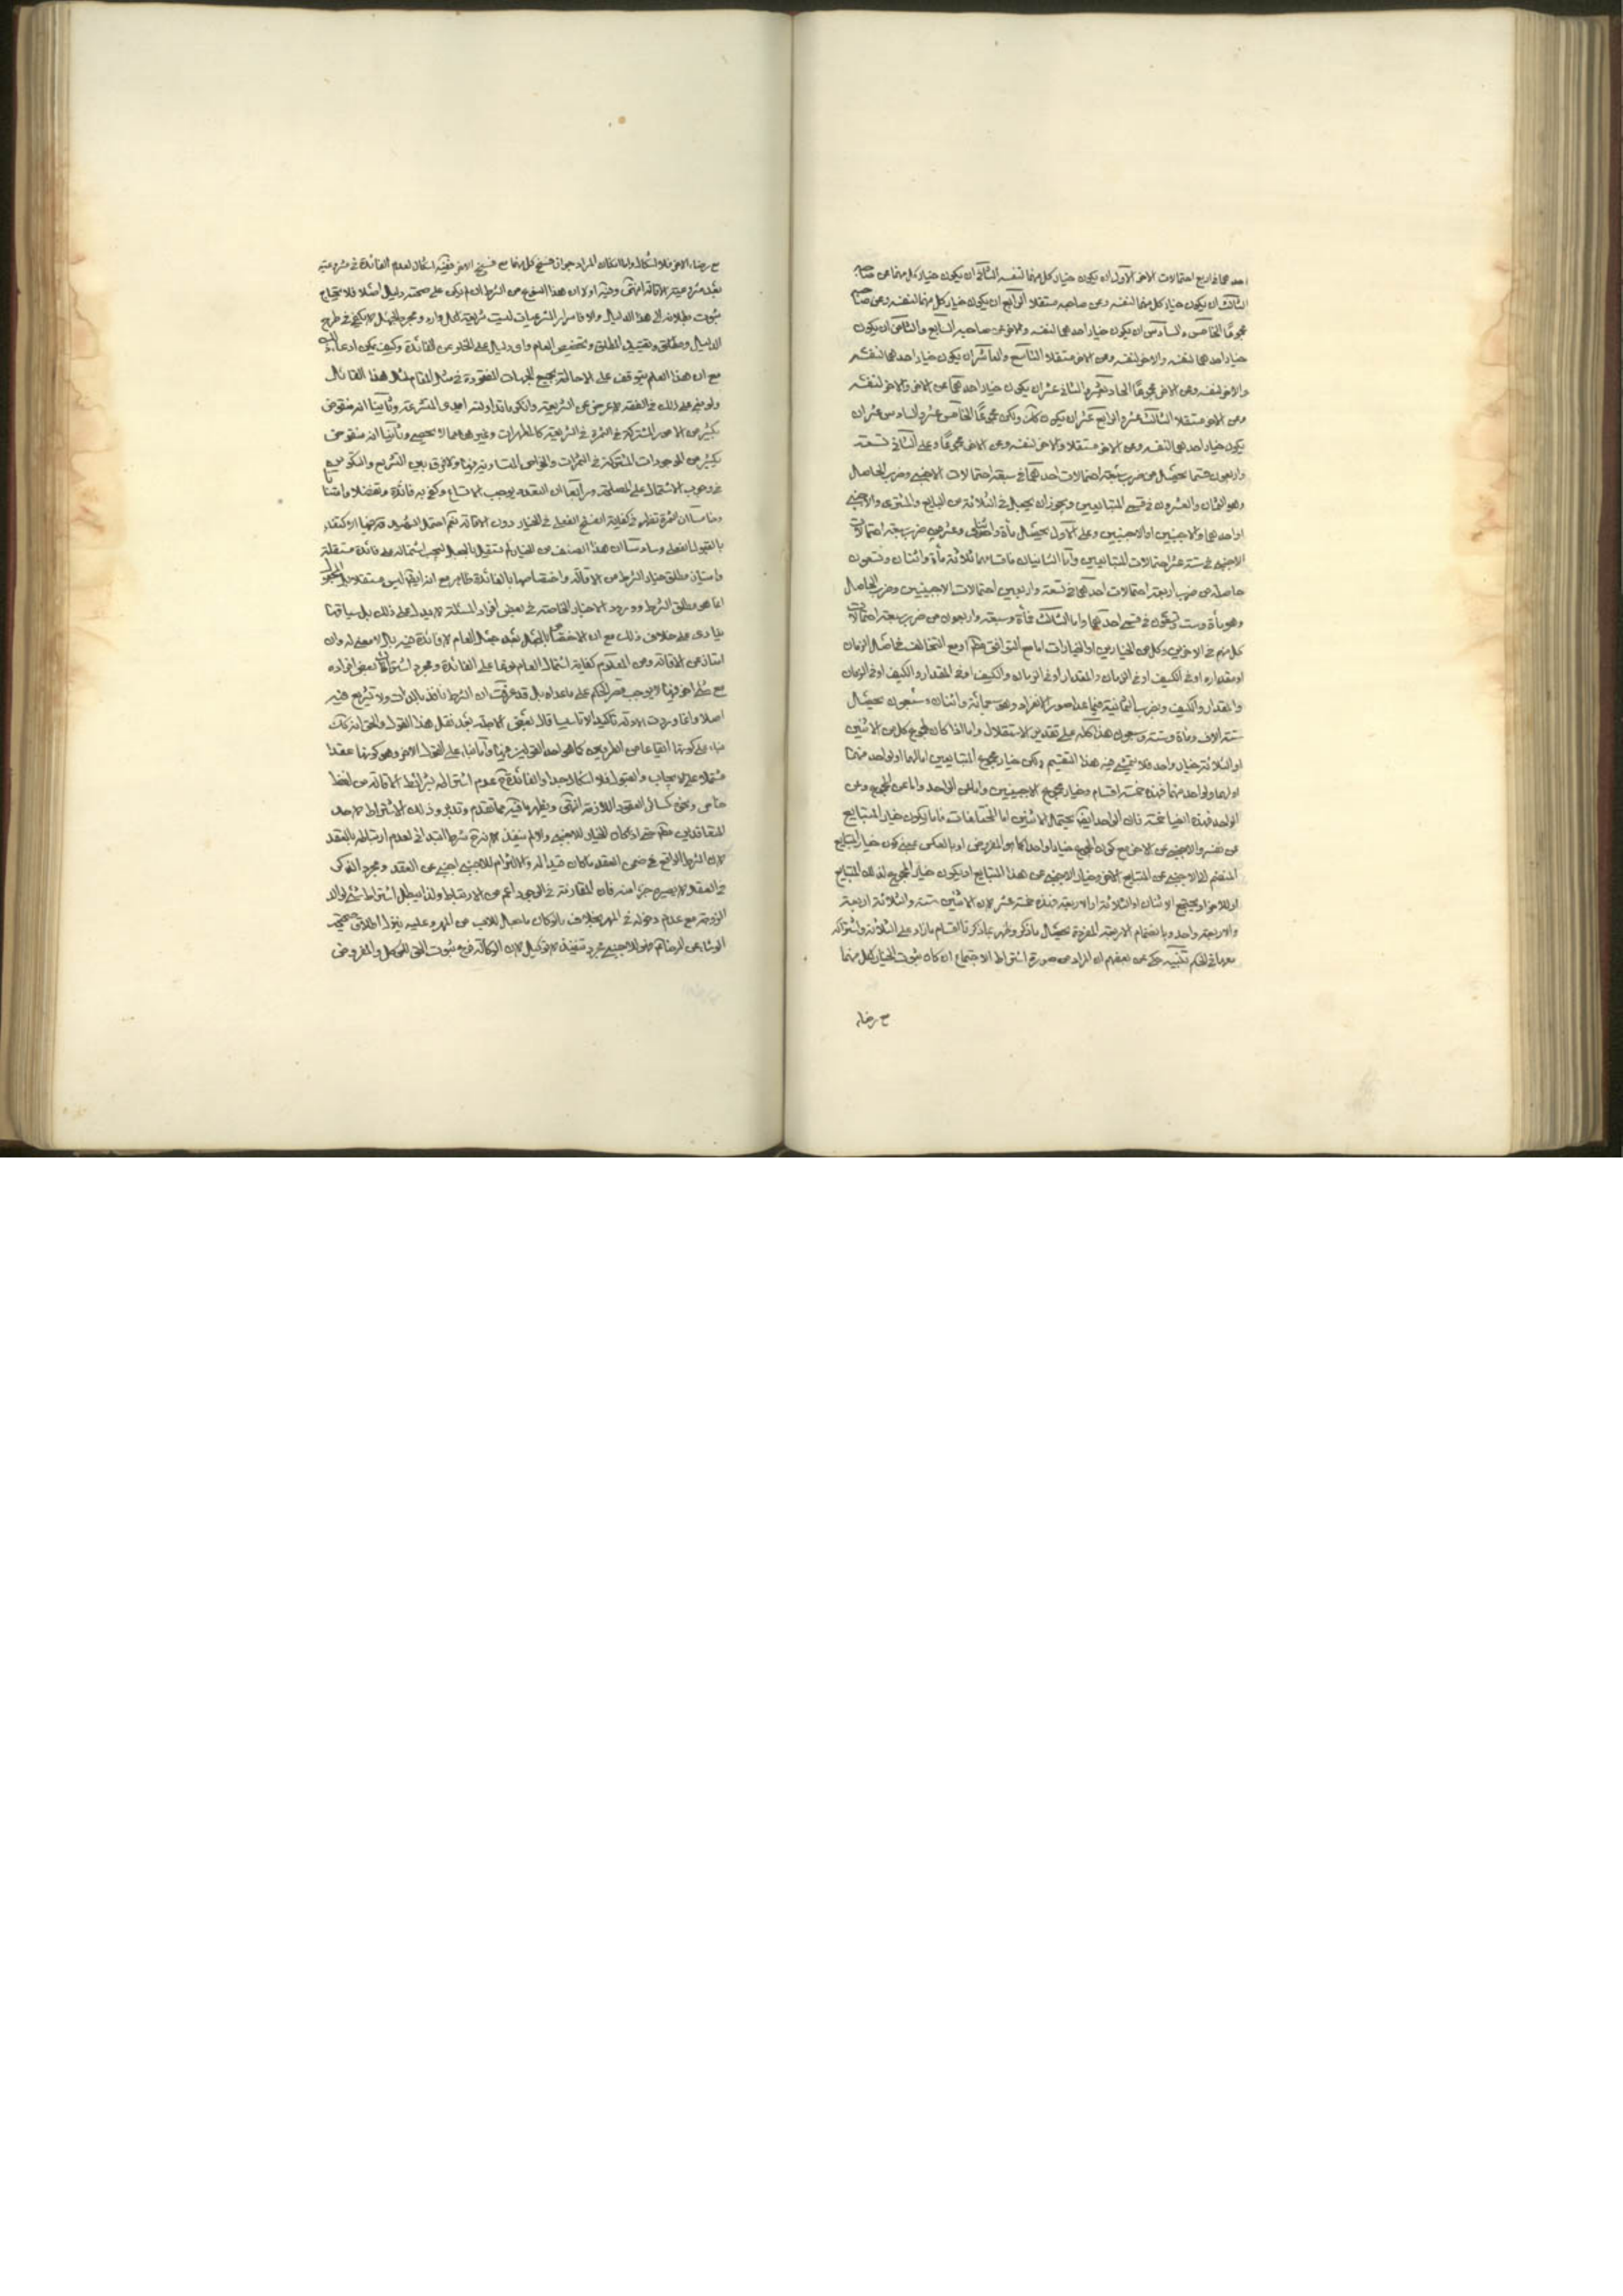 احدهما في اربع احتمالات الاخر الاول ان يكون خيار كل منهما لنفسه الثاني ان يكون خيار كل منهما عن صاحبه
الثالث ان يكون خيار كل منهما لنفسه وعن صاحبه مستقلا الرابع ان يكون خيار كل منهما لنفسه وعن صاحبه
مجموعا الخامس والسادس ان يكون خيار احدهما لنفسه والاخر عن صاحبه السابع والثامن ان يكون
خيار احدهما لنفسه والاخر لنفسه وعن الاخر مستقلا التاسع والعاشر ان يكون خيار احدهما لنفسه
والاخر لنفسه وعن الاخر مجموعا الحاديعشر والثاني عشر ان يكون خيار احدهما عن الاخر والاخر لنفسه
وعن الاخر مستقلا الثالث عشر والرابع عشر ان يكون كك ولكن مجموعا الخامس عشر والسادس عشر ان
يكون خيار احدهما لنفسه وعن الاخر مستقلا والاخر لنفسه وعن الاخر مجموعا وعلى الثاني تسعة
واربعون قسما يحصل من ضرب سبعة احتمالات احدهما في سبعة احتمالات الاجنبي وضرب الحاصل
وهو الثمان والعشرون في قسمي المتبايعين ويجوز ان يجعل في الثلاثة من البايع والمشتري والاجنبي
او احدهما والاجنبيين او الاجنبيين وعلى الاول يحصل مأة واثنى وعشر من ضرب سبعة احتمالات
الاجنبي في ستة عشر احتمالات المتبايعين واما الثانيان فاقسامهما ثلاثة مأة واثنتان وتسعون
حاصلة من ضرب اربعة احتمالات احدهما في تسعة واربعين احتمالات الاجنبيين وضرب الحاصل
وهو مأة وست وتسعون في قسمي احدهما واما الثالث فمأة وسبعة واربعون من ضرب سبعة احتمالات
كل منهم في الاخرين وكل من الخيارين او الخيارات اما مع التوافق مطلقا او مع التخالف في اصل الزمان
او مقداره او في الكيف او في الزمان والمقدار او في الزمان والكيف او في المقدار والكيف او في الزمان
والمقدار والكيف وبضرب الثمانية فيما عدا صور الانفراد وهي سبعمائة واثنان وسبعون يحصل
ستة الاف ومأة وستة وسبعون هذا كله على تقدير الاستقلال واما اذا كان لمجموع كل من الاثنين
او الثلاثة خيار واحد فلا يتمشى فيه هذا التقسيم ولكن خيار مجموع المتبايعين اما لهما او لواحد منهما
او لهما ولواحد منهما فهذه خمسة اقسام وخيار مجموع الاجنبيين واما عن الواحد واما عن المجموع وعن
الواحد فهذه ايضا خمسة فان الواحد ايضا يحتمل الاثنين اما المختلفات فاما يكون خيار المتبايع
عن نفسه والاجنبي عن الاخر مع كون المجموع خيارا واحدا كما هو المفروض او بالعكس بمعنى كون خيار المتبايع
المنضم الى الاجنبي عن المتبايع الاخر وخيار الاجنبي عن هذا المتبايع او يكون خيار المجموع لذلك المتبايع
او للاخر او يجتمع الاثنان او الثلاثة او الاربعة فهذه خمسة عشر لان الاثنين ستة والثلاثة اربعة
والاربعة واحد وبانضمام الاربعة المفردة يحصل ما ذكر وظهر بما ذكرنا اقسام ما زاد على الثلاثة واشتراكه
معها في الحكم تنبيه حكى عن بعضهم ان المراد من صورة اشتراط الاجتماع ان كان ثبوت الخيار لكل منهما
مع رضاء
مع رضاء الاخر فلا اشكال واما ان كان المراد جواز فسخ كل منهما مع فسخ الاخر ففيه اشكال لعدم الفائدة في مشروعيته
بعد مشروعية الاقالة انتهى وفيه اولا ان هذا النوع من الشرط ان لم يكن على صحته دليل اصلا فلا يحتاج
ثبوت بطلانه الى هذا الدليل والا فاسرار الشرعيات ليست شريعة لكل وارد ومجرد الجهل لا يكفي في طرح
الدليل ومطلق وتقييد المطلق وتخصيص العام واي دليل على الخلو عن الفائدة وكيف يمكن ادعاء
مع ان هذا العلم يتوقف على الاحاطة بجميع الجهات المفقودة في مثل المقام لمثل هذا القائل
ولو بنى على ذلك في الفقه لاعرض عن الشريعة وانكر ما تداولته ايدي المتشرعة وثانيا انه منقوض
بكثير من الامور المشتركة في الثمرة في الشريعة كالمطهرات وغيرها مما لا يحصى وثالثا انه منقوض
بكثير من الموجودات المشتركة في الثمرات والخواص المتساوية فيها ولا فرق بين التشريع والتكوين
في وجوب الاشتمال على المصلحة ورابعا ان التعدد يوجب الاتساع وكفى به فائدة وتفضلا وامتنانا
وخامسا ان الثمرة تظهر في كفاية الفسخ الفعلي في الخيار دون الاقالة نعم احتمل الشهيد قدس فيها الاكتفاء
بالقبول الفعلي وسادسا ان هذا الصنف من الخيار لم يستقل بالجعل ليجب اشتماله على فائدة مستقلة
وامتياز مطلق خيار الشرط من الاقالة واختصاصها بالفائدة ظاهر مع انه ايضا ليس مستقلا بل المجعول
انما هو مطلق الشرط وورود الاخبار الخاصة في بعض افراد المسئلة لا يدل على ذلك بل سياقها
ينادى على خلاف ذلك مع ان الاختصاص بالجعل بعد جعل العام لا فائدة فيه بل لا معنى له وان
امتاز عن الاقالة ومن المعلوم كفاية اشتمال العام بعمومه على الفائدة ومجرد اشتراك بعض افراده
مع شيء اخر فيها لا يوجب قصر الحكم على ما عداه بل قد عرفت ان الشرط نافذ بالذات ولا تشريع فيه
اصلا وانما وردت الادلة تاكيدا لا تاسيسا قال بعض الاجلة بعد نقل هذا القول والحق انه كك
بناء على كونها ايقاعا من الطرفين كما هو احد القولين فيها واما بناء على القول الاخر وهو كونها عقدا
مشتملا على الايجاب والقبول فلا اشكال جدا والفائدة ح عدم اشتراطه بشرائط الاقالة من لفظ
خاص ونحوه كسائر العقود اللازمة انتهى ويظهر ما فيه مما تقدم وتدبر وذلك الاشتراط لاحد
المتعاقدين مطلقا حتى اذا كان الخيار للاجنبي والا لم ينفذ لاندرج شرط ابتدائي لعدم ارتباطه بالعقد
لان الشرط الواقع في ضمن العقد ما كان قيدا له والالتزام للاجنبي اجنبي عن العقد ومجرد الذكر
في العقد لا يصيره جزءا منه فان المقارنة في الوجود اعم من الارتباط ولذا يبطل اشتراط شيء لوالد
الزوجة مع عدم دخوله في المهر بخلاف ما لو كان ما جعل للاب من المهر وعليه ينزل اطلاق صحيحة
الوشاء عن الرضا نعم هو للاجنبي بمجرد تنفيذ لا توكيل لان الوكالة فرع ثبوت الحق للموكل والمفروض